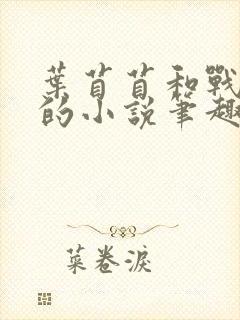 葉苜苜和戰
的小說筆趣
菜卷淚